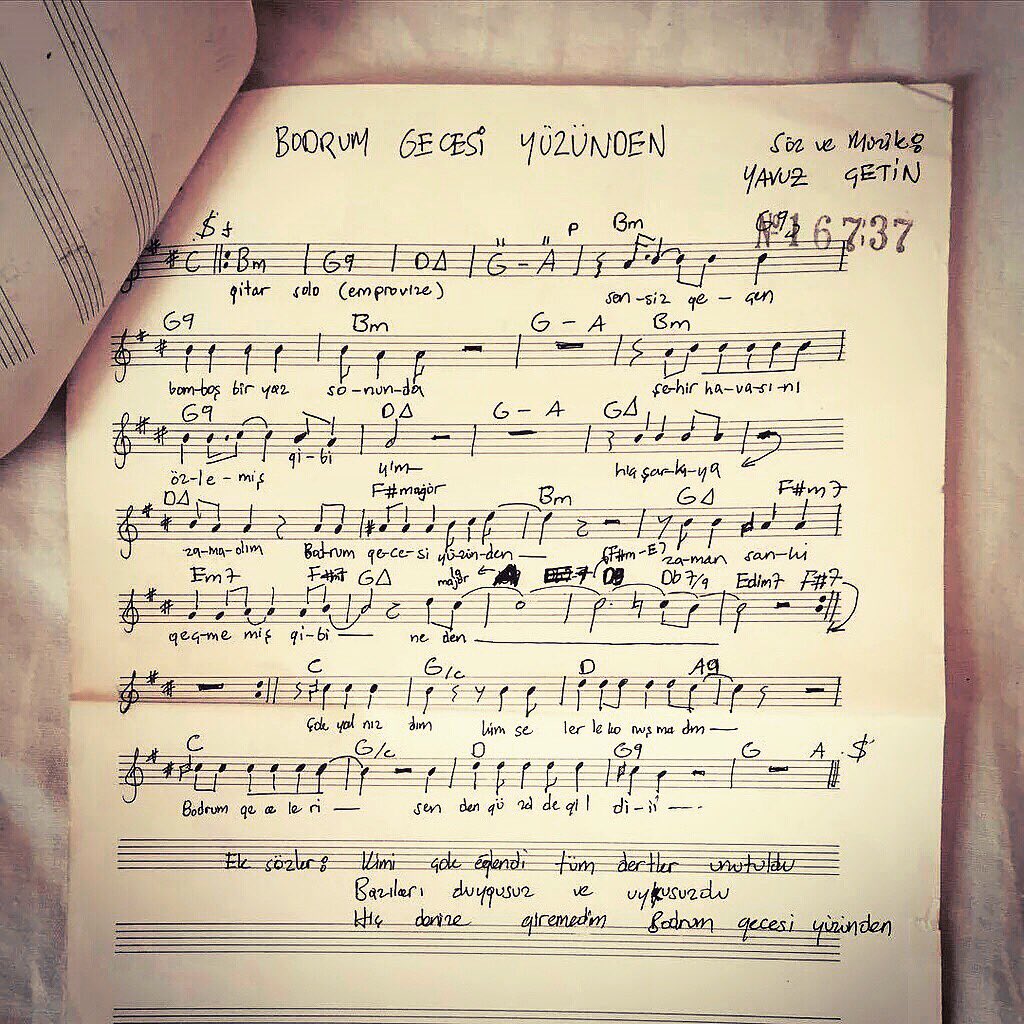 BODRUM GECESİ YÜZÜNDEN
Söz ve Müzik:
YAVUZ ÇETİN
№ 16737
Bm G9
C Bm G9 DΔ G - A P
gitar solo (emprovize) sen-siz ge - çen
G9 Bm G - A Bm
bom-boş bir yaz so-nun-da şe-hir ha-va-sı-nı
G9 DΔ G - A GΔ
öz-le-miş gi-bi yim hiç şar-kı-ya
DΔ F#majör Bm GΔ F#m7
za-ma-dım Bodrum ge-ce-si yüzün-den zaman san-ki
Em7 F#7 GΔ la majör (F#m-E7 Db7/9 Edim7 F#7
geç-me miş gi-bi ne den
C G/C D A9
Çok yal nız dım kim se ler le ko nuş ma dım
C G/C D G9 G A
Bodrum ge ce le ri sen den gü zel de ğil di-ii
Ek sözler: Kimi çok eğlendi tüm dertler unutuldu
Bazıları duygusuz ve uykusuzdu
Hiç denize giremedim Bodrum gecesi yüzünden